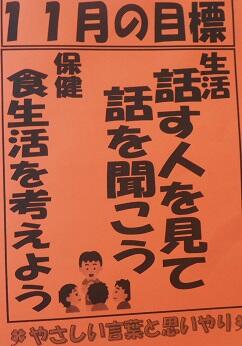 11月の目標
生活
話す人を見て
話を聞こう
保健
食生活を考えよう
※やさしい言葉と思いやり※